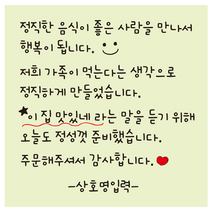 정직한 음식이 좋은 사람을 만나서
행복이 됩니다.
저희 가족이 먹는다는 생각으로
정직하게 만들었습니다.
"이 집 맛있네 라는 말을 듣기 위해
오늘도 정성껏 준비했습니다.
주문해주셔서 감사합니다.
-상호명입력-